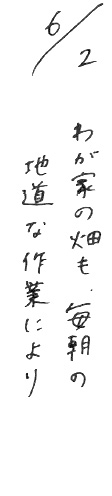 6/2
わが家の畑も、毎朝の
地道な作業により